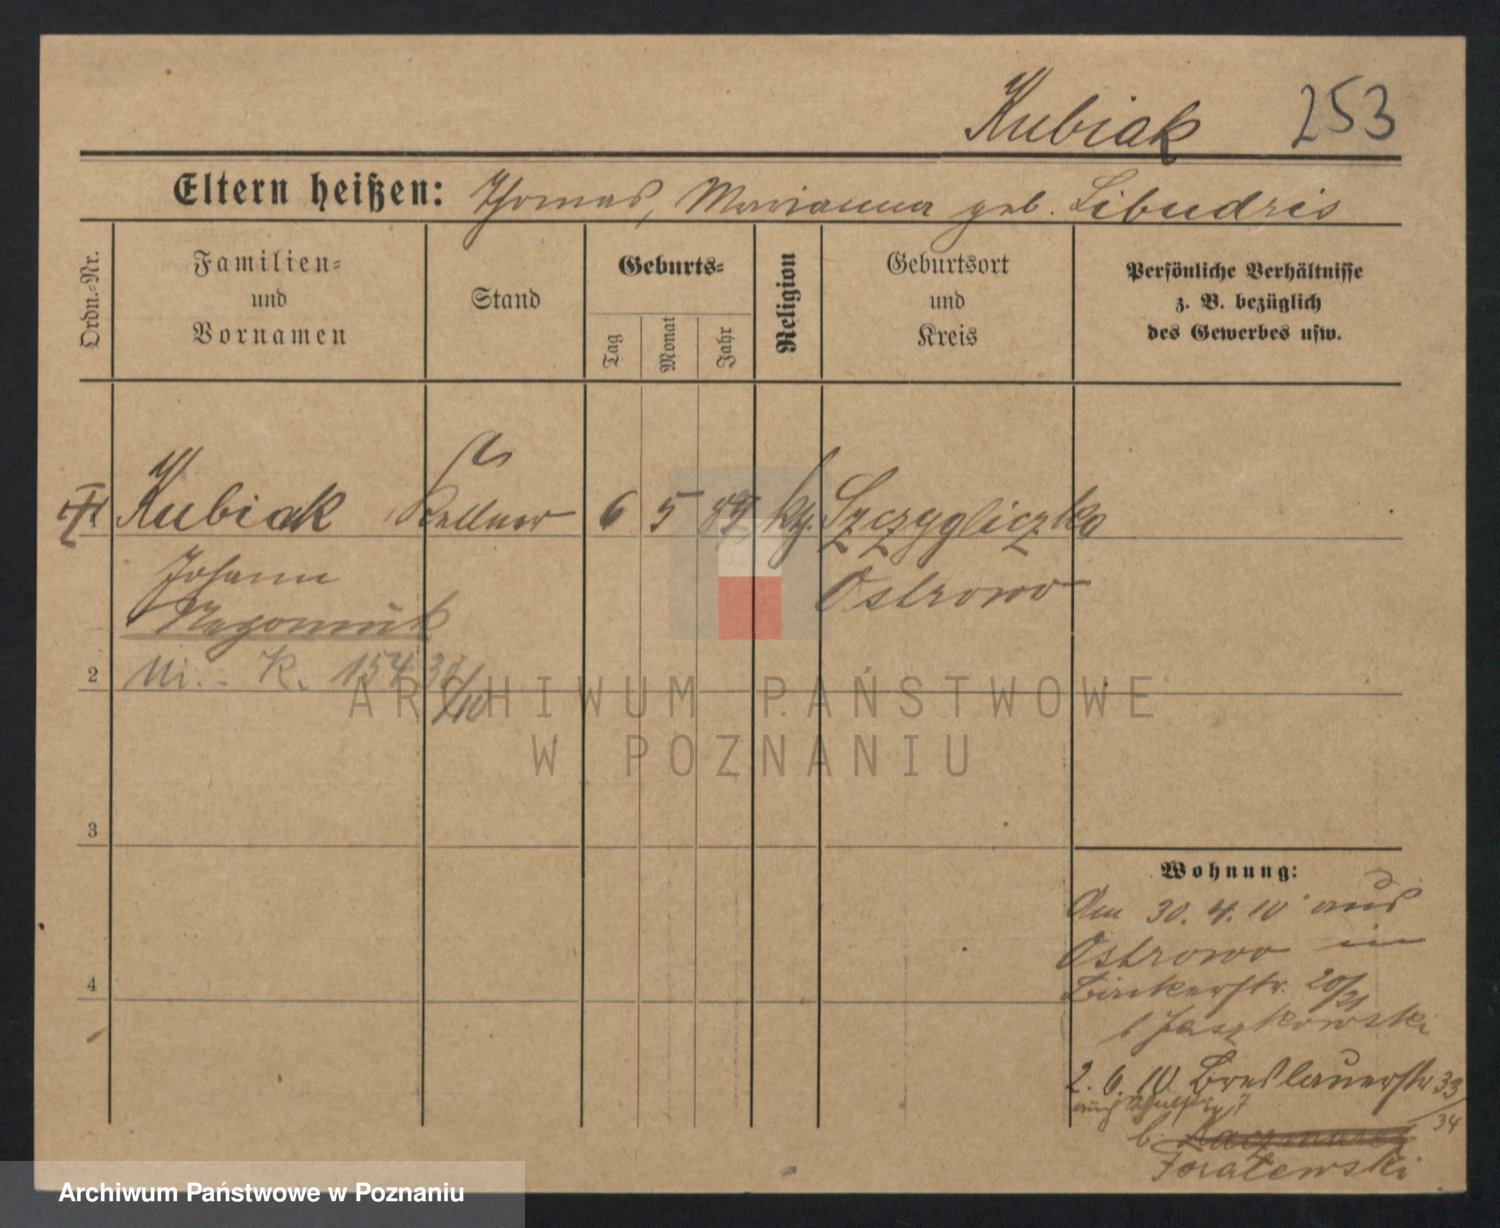 Kubiak 253
Eltern heißen: Thomas, Marianna geb. Libudzis
Ordn.-Nr.
Familien-
und
Vornamen
Stand
Geburts-
Tag
Monat
Jahr
Religion
Geburtsort
und
Kreis
Persönliche Verhältnisse
z. B. bezüglich
des Gewerbes usw.
Kubiak Kellner 6 5 89 kg. Szczygliczka
Johann Ostrowo
2
3
4
Wohnung:
Am 30. 4. 10 aus
Ostrowo in
Bäckerstr. 20/21
b Jaszkowski
2. 6. 10. Breslauerstr 33/34
auch
b. Kaczmarek
ARCHIWUM PAŃSTWOWE
W POZNANIU
Archiwum Państwowe w Poznaniu